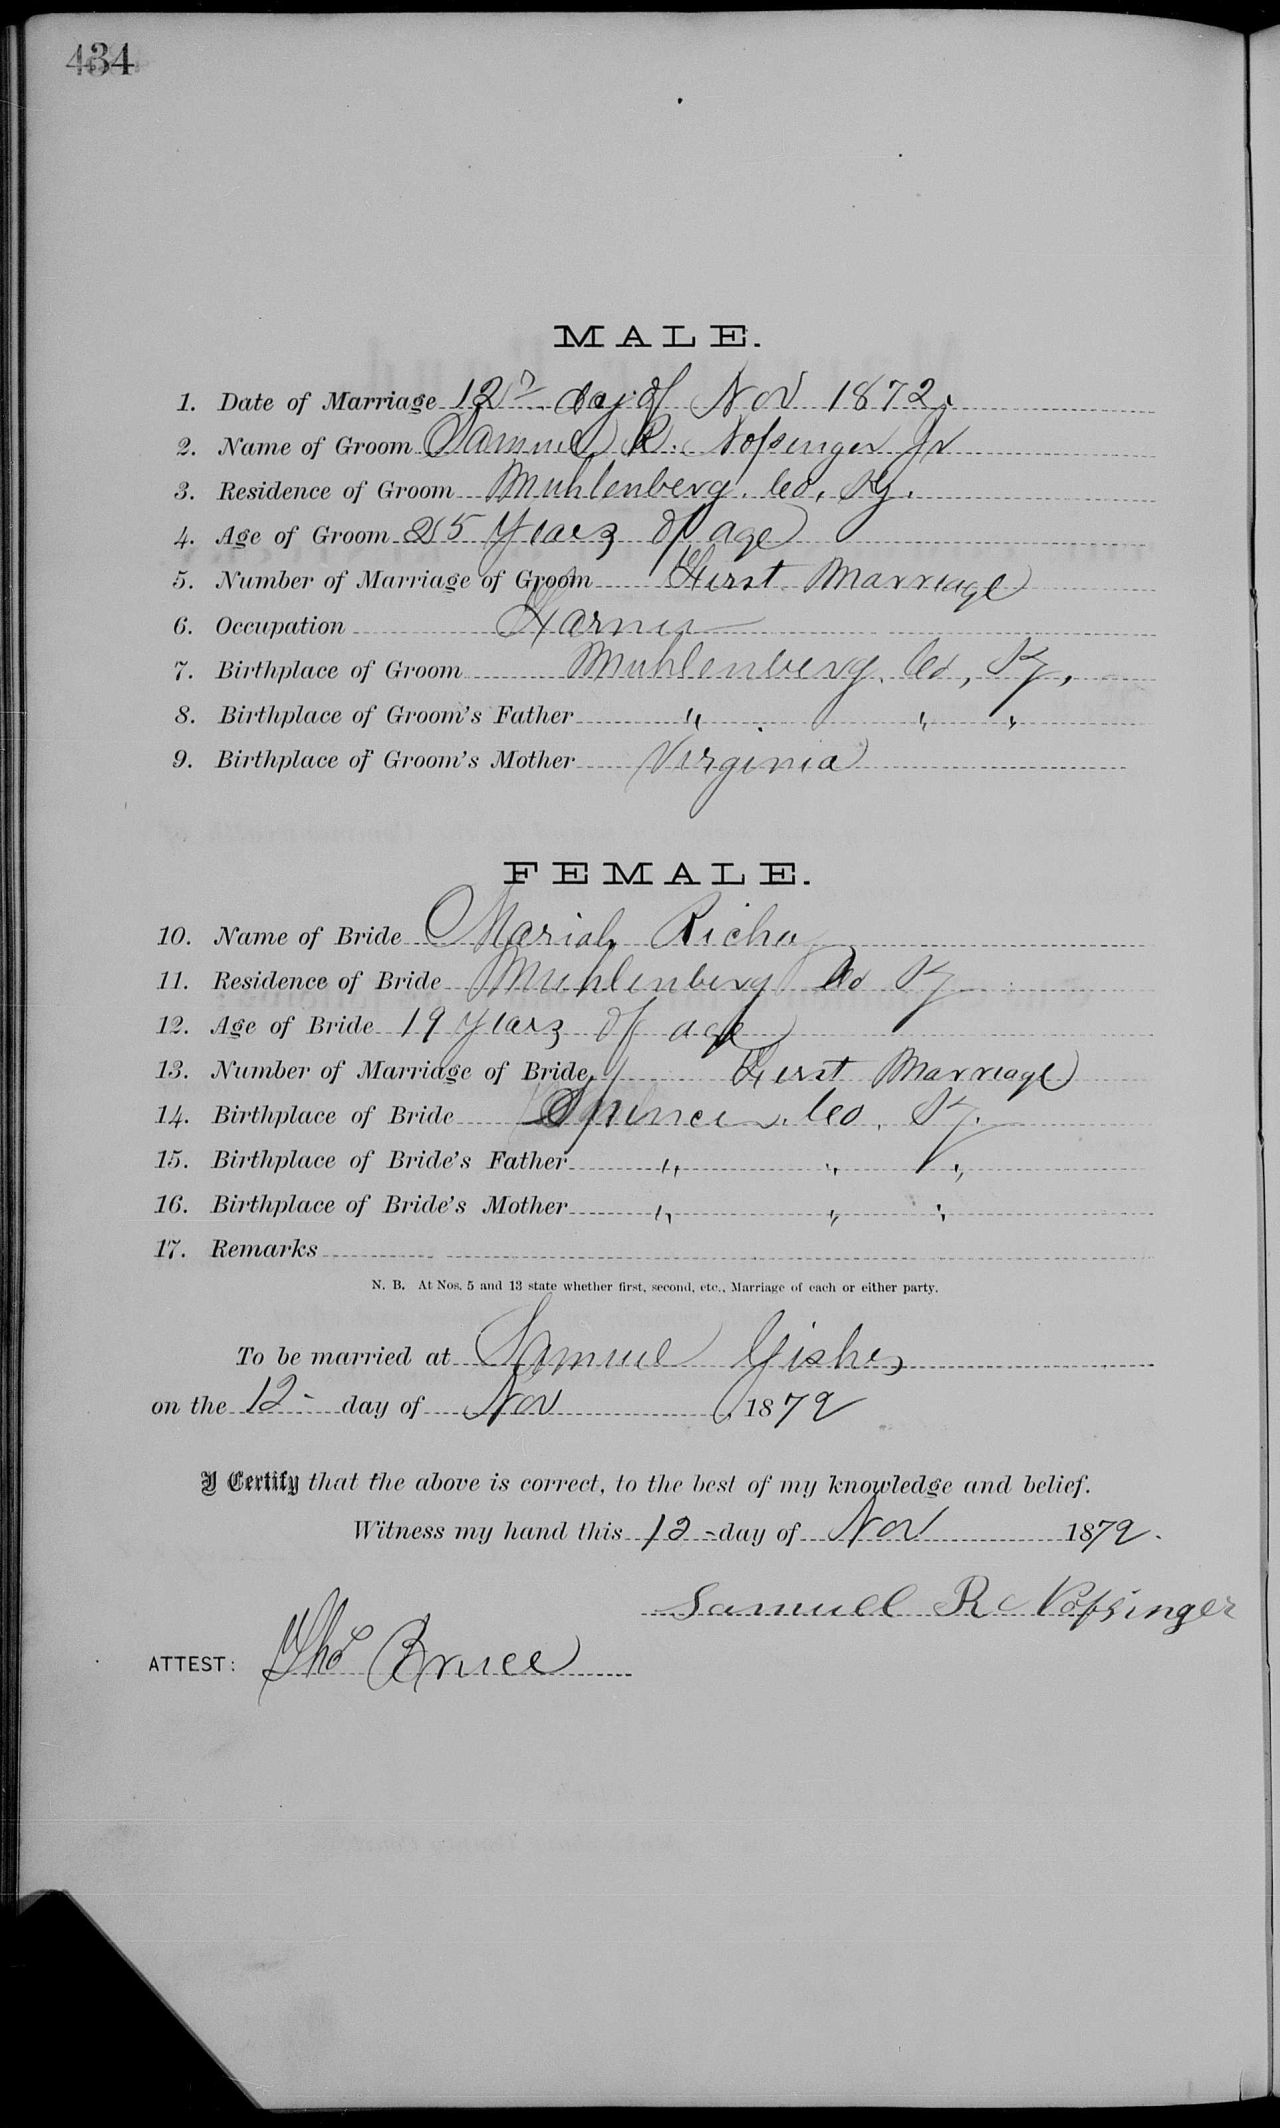 434
MALE.
1. Date of Marriage 12th day of Nov 1872.
2. Name of Groom Samuel R. Nofsinger Jr
3. Residence of Groom Muhlenberg Co, Ky.
4. Age of Groom 25 Years of age
5. Number of Marriage of Groom First Marriage
6. Occupation Farmer
7. Birthplace of Groom Muhlenberg. Co, Ky,
8. Birthplace of Groom's Father " " "
9. Birthplace of Groom's Mother Virginia
FEMALE.
10. Name of Bride Mariah
11. Residence of Bride Muhlenberg Co Ky
12. Age of Bride 19 years of age
13. Number of Marriage of Bride First Marriage
14. Birthplace of Bride Spencer. Co, Ky.
15. Birthplace of Bride's Father " " "
16. Birthplace of Bride's Mother " " "
17. Remarks
N. B. At Nos. 5 and 13 state whether first, second, etc., Marriage of each or either party.
To be married at Samuel Gishes
on the 12- day of Nov, 1872
I Certify that the above is correct, to the best of my knowledge and belief.
Witness my hand this 12-day of Nov 1872.
Samuel R Nofsinger
ATTEST: Tho Bruce